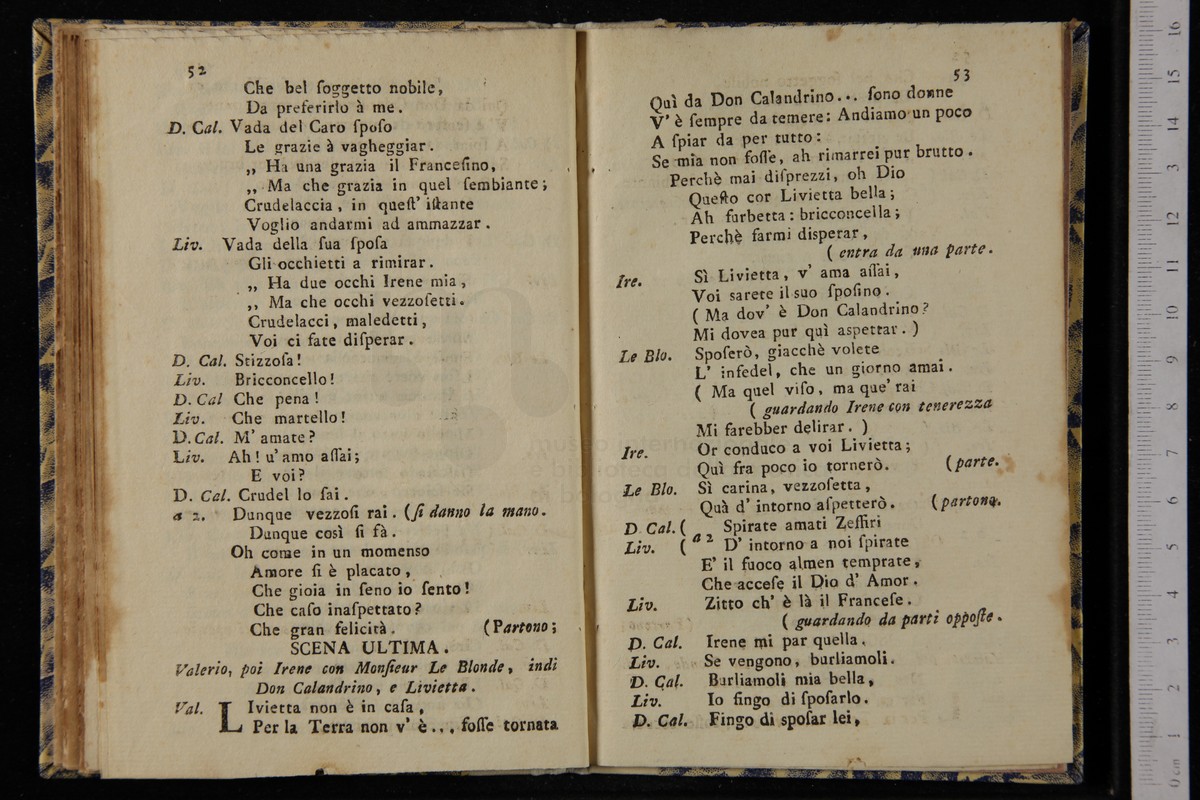 52
Che bel ſoggetto nobile,
Da preferirlo à me.
D. Cal. Vada del Caro ſpoſo
Le grazie à vagheggiar.
„ Ha una grazia il Franceſino,
„ Ma che grazia in quel ſembiante;
Crudelaccia, in queſt' iſtante
Voglio andarmi ad ammazzar.
Liv. Vada della ſua ſpoſa
Gli occhietti a rimirar.
„ Ha due occhi Irene mia,
,, Ma che occhi vezzoſetti.
Crudelacci, maledetti,
Voi ci fate diſperar.
D. Cal. Stizzoſa!
Liv. Bricconcello!
D. Cal Che pena!
Liv. Che martello!
D. Cal. M' amate?
Liv. Ah! u' amo aſſai;
E voi?
D. Cal. Crudel lo ſai.
a 2. Dunque vezzoſi rai. (ſi danno la mano.
Dunque così ſi fà.
Oh come in un momenso
Amore ſi è placato,
Che gioia in ſeno io ſento!
Che caſo inaſpettato?
Che gran felicità. (Partono;
SCENA ULTIMA.
Valerio, poi Irene con Monſieur Le Blonde, indi
Don Calandrino, e Livietta.
Val. LIvietta non è in caſa,
Per la Terra non v' è... foſſe tornata
53
Quì da Don Calandrino... ſono donne
V' è ſempre da temere: Andiamo un poco
A ſpiar da per tutto:
Se mia non foſſe, ah rimarrei pur brutto.
Perchè mai diſprezzi, oh Dio
Queſto cor Livietta bella;
Ah furbetta: bricconcella;
Perchè farmi disperar,
( entra da una parte.
Ire. Sì Livietta, v' ama aſſai,
Voi sarete il suo ſpoſino.
( Ma dov' è Don Calandrino?
Mi dovea pur quì aspettar. )
Le Blo. Spoſerò, giacchè volete
L' infedel, che un giorno amai.
( Ma quel viſo, ma que' rai
( guardando Irene con tenerezza
Mi farebber delirar. )
Ire. Or conduco a voi Livietta;
Quì fra poco io tornerò. (parte.
Le Blo. Sì carina, vezzoſetta,
Quà d' intorno aſpetterò. (partono.
D. Cal. ( Spirate amati Zeffiri
Liv. ( a 2 D' intorno a noi ſpirate
E' il fuoco almen temprate,
Che acceſe il Dio d' Amor.
Liv. Zitto ch' è là il Franceſe.
( guardando da parti oppoſte.
D. Cal. Irene mi par quella.
Liv. Se vengono, burliamoli.
D. Cal. Burliamoli mia bella,
Liv. Io fingo di ſpoſarlo.
D. Cal. Fingo di spoſar lei,